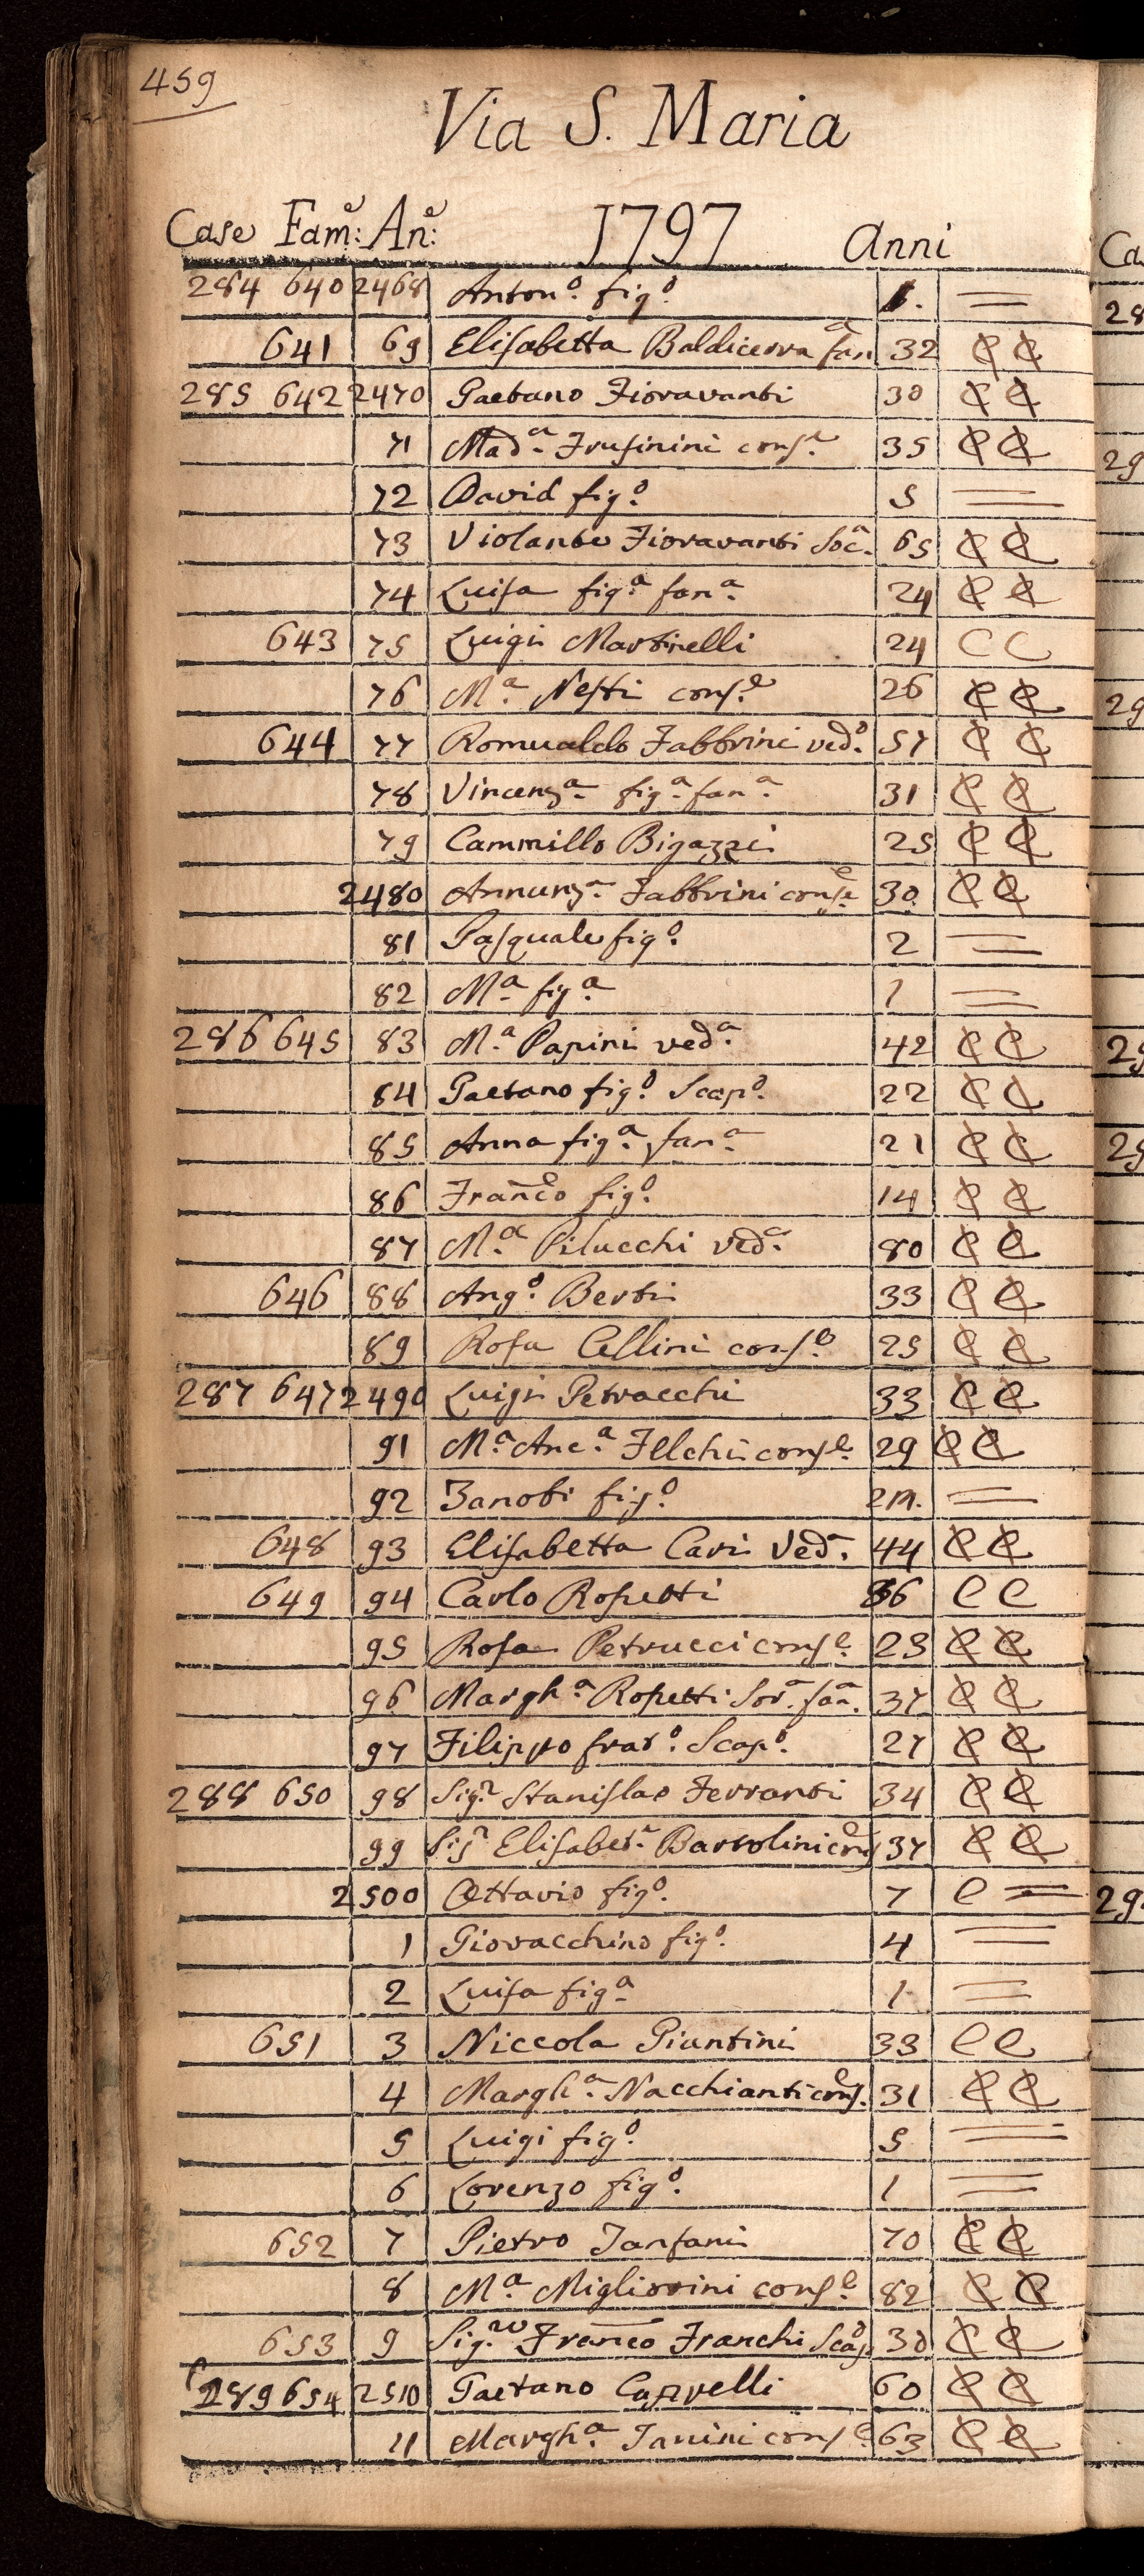 459
Via S. Maria
Case Fam:e An:e 1797 Anni
284 640 2468 Anton.o fig.o =
641 69 Elisabetta Baldicerva fan.a 32 C C
285 642 2470 Gaetano Fioravanti 30 C C
71 Mad.a Frusinini cons.e 35 C C
72 David fig.o 5 =
73 Violante Fioravanti Soc.a 65 C C
74 Luisa fig.a fan.a 24 C C
643 75 Luigi Martinelli 24 C C
76 M.a Nesti cons.e 26 C C
644 77 Romualdo Fabbrini ved.o 57 C C
78 Vincenz.a fig.a fan.a 31 C C
79 Cammillo Bigazzi 25 C C
2480 Annunz.a Fabbrini cons.e 30 C C
81 Pasquale fig.o 2 =
82 M.a fig.a 1 =
286 645 83 M.a Papini ved.a 42 C C
84 Gaetano fig.o Scap.o 22 C C
85 Anna fig.a fan.a 21 C C
86 Franco fig.o 14 C C
87 M.a Pilucchi ved.a 80 C C
646 88 Ang.o Berti 33 C C
89 Rosa Cellini cons.e 25 C C
287 647 2490 Luigi Petracchi 33 C C
91 M.a Anc.a Felchi cons.e 29 C C
92 Zanobi fig.o 2m. =
648 93 Elisabetta Cari Ved.a 44 C C
649 94 Carlo Ropetti 36 C C
95 Rosa Petrucci cons.e 23 C C
96 Margh.a Ropetti Sor.a fan.a 37 C C
97 Filippo frat.o Scap.o 27 C C
288 650 98 Sig.r Stanislao Ferranti 34 C C
99 Sig.a Elisabet.a Bartolini cons.e 37 C C
2500 Ottavio fig.o 7 C =
1 Giovacchino fig.o 4 =
2 Luisa fig.a 1 =
651 3 Niccola Piantini 33 C C
4 Margh.a Nacchianti cons.e 31 C C
5 Luigi fig.o 5 =
6 Lorenzo fig.o 1 =
652 7 Pietro Tanfani 70 C C
8 M.a Migliorini cons.e 82 C C
653 9 Sig.re Franco Franchi Scap.o 30 C C
289 654 2510 Gaetano Capvelli 60 C C
11 Margh.a Tanini cons.e 63 C C